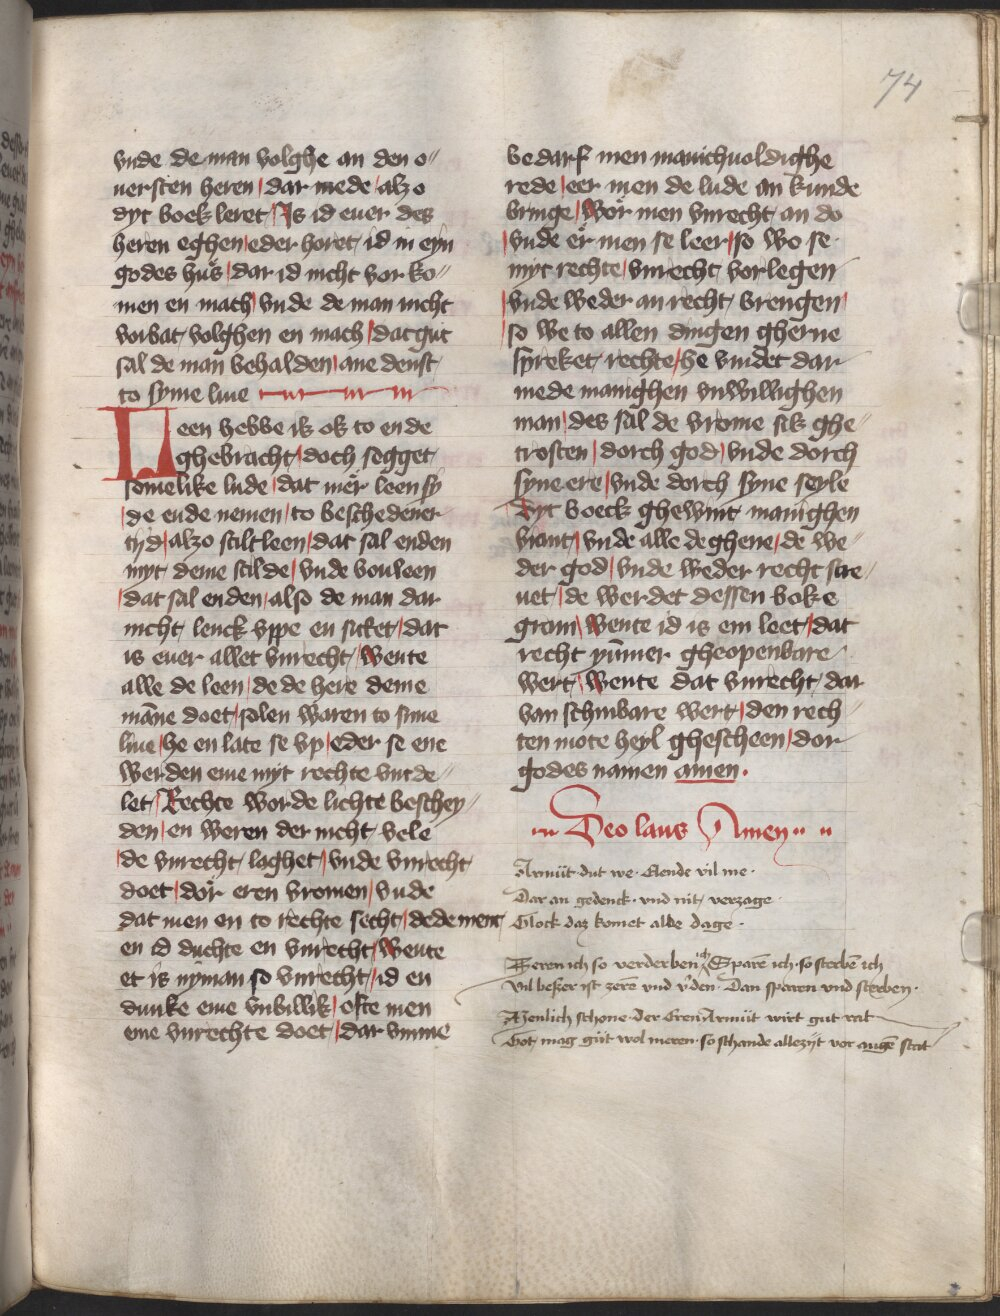 74
vnde de man volghe an den o〃
uersten heren dar mede alzo
dyt boek leret Is id euer des
heren eghen eder horet id in eyn
godes hus dar id nicht vor ko〃
men en mach vnde de man nicht
vorbat volghen en mach dat gut
sal de man behalden ane denst
to syme liue
Leen hebbe ik ok to ende
ghebracht doch segget
somelike lude dat mer leen sy
de ende nemen to beschedener
tyd alzo scilt leen dat sal enden
myt deme scilde vnde bouleen
dat sal enden also de man dar
nicht lenck vppe en sittet dat
is euer allet vnrecht Wente
alle de leen de de here deme
māne doet solen waren to sime
liue he en late se vp eder se ene
werden eme myt rechte vntde〃
let Rechte worde lichte beschey〃
den en weren der nicht vele
de vnrecht laghet vnde vnrecht
doet dor eren vromen vnde
dat men en to rechte secht de de ment
en id duchte en vnrecht Wente
et is nyman so vnrecht id en
dunke eme vnbillik ofte men
eme vnrechte doet dar vmme
bedarf men manichuoldighe
rede eer men de lude an kunde
bringe Wor men vnrecht an do
vnde er men se leer so wo se
myt rechte vnrecht vorlegen
vnde weder an recht brengen
so we to allen dingen gherne
spreket rechte he vindet dar
mede manighen vnwillighen
man des sal de vrome sik ghe〃
trosten dorch god vnde dorch
syne ere vnde dorch syne seyle
Dyt boeck ghewint manighen
viant vnde alle de ghene de we〃
der god vnde weder recht stre〃
uet de werdet dessen boke
gram Wente id is em leet dat
recht yūmer gheopenbare
wert Wente dat vnrecht dar
van schinbare wert den rech〃
ten mote heyl ghescheen dor
godes namen amen.
Deo laus Amen
Armüt dut we. Elende vil me.
Dar an gedenck. vnd nit verzage.
Glock daz komet alde dage.
Zeren ich so verderben ich Sparē ich. so sterbē ich
Vil beßer ist zere vnd v'den. Dan sparen vnd sterben.
Henlich schone der Eren Armüt wirt gut rat
Got mag güt wol meren. so schande allezijt vor augē stat